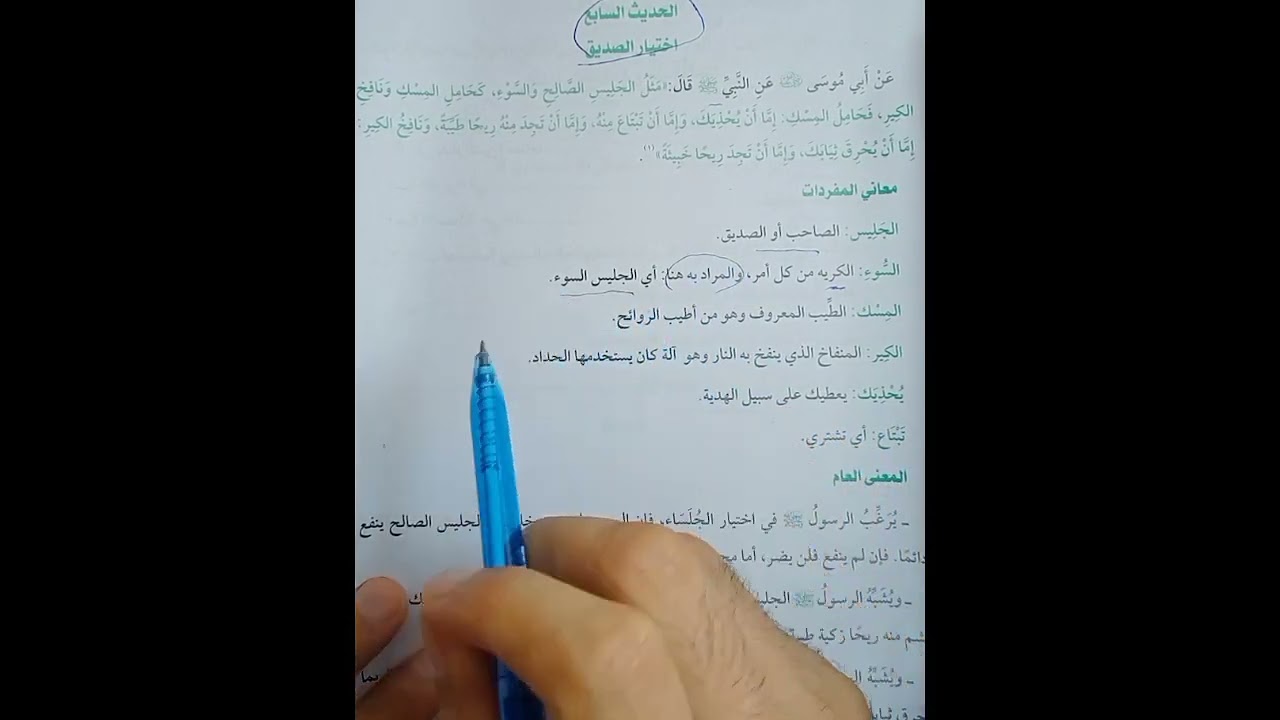 الحديث السابع
اختيار الصديق
عَنْ أَبِي مُوسَى ﵁ عَنِ النَّبِيِّ ﷺ قَالَ: «مَثَلُ الجَلِيسِ الصَّالِحِ وَالسَّوْءِ، كَحَامِلِ المِسْكِ وَنَافِخِ
الكِيرِ، فَحَامِلُ المِسْكِ: إِمَّا أَنْ يُحْذِيَكَ، وَإِمَّا أَنْ تَبْتَاعَ مِنْهُ، وَإِمَّا أَنْ تَجِدَ مِنْهُ رِيحًا طَيِّبَةً، وَنَافِخُ الكِيرِ:
إِمَّا أَنْ يُحْرِقَ ثِيَابَكَ، وَإِمَّا أَنْ تَجِدَ رِيحًا خَبِيثَةً»(١).
معاني المفردات
الجَلِيس: الصاحب أو الصديق.
السُّوءِ: الكريه من كل أمر، والمراد به هنا: أي الجليس السوء.
المِسْك: الطِّيب المعروف وهو من أطيب الروائح.
الكِير: المنفاخ الذي ينفخ به النار وهو آلة كان يستخدمها الحداد.
يُحْذِيَك: يعطيك على سبيل الهدية.
تَبْتَاع: أي تشتري.
المعنى العام
ـ يُرَغِّبُ الرسولُ ﷺ في اختيار الجُلَسَاء، فإن الجليس الصالح ينفع
دائمًا. فإن لم ينفع فلن يضر، أما
ـ ويُشَبِّهُ الرسولُ ﷺ
منه ريحًا زكية
ـ ويُشَبِّهُ